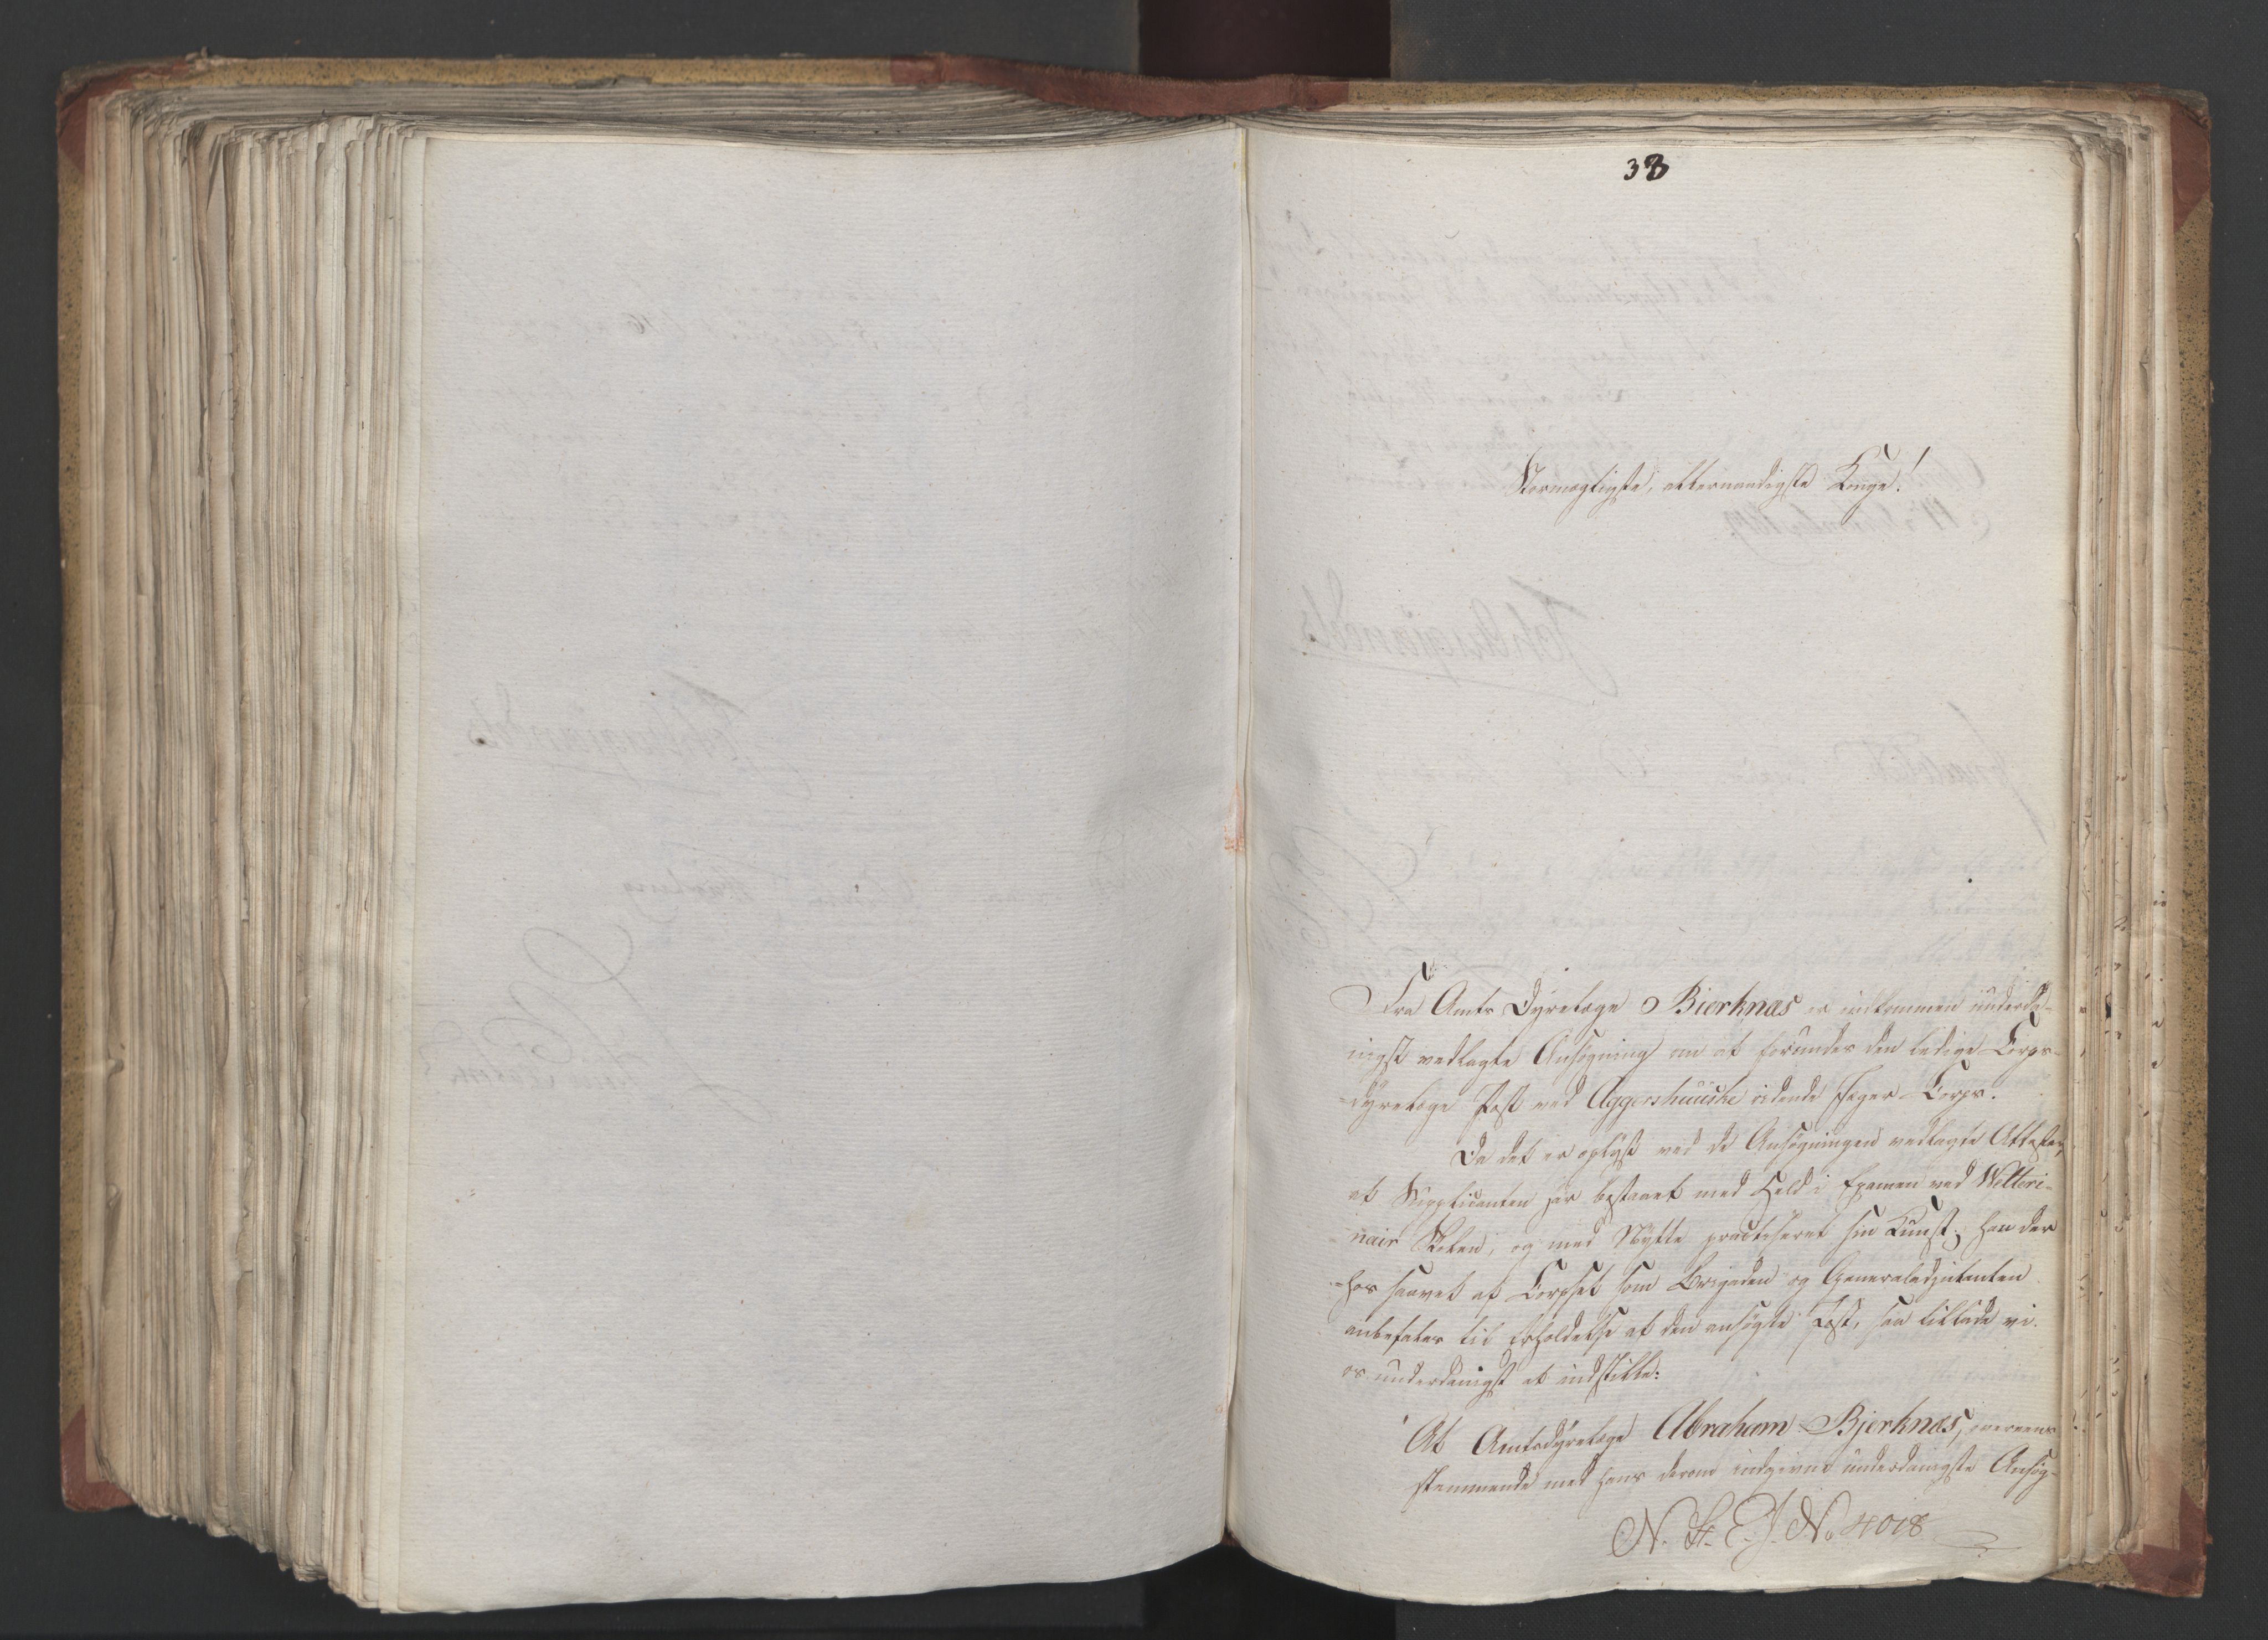 38
Stormægtigste, allernaadigste Konge!
Fra Amts Dyrelæge Bierknæs er indkommen underda-
nigst vedlagte Ansøgning om at forundes den ledige Corps-
-dyrelæge Post ved Aggershuuske ridende Jæger-Corps.
Da det er oplyst ved de Ansøgningen vedlagte Attester,
at Supplicanten har bestaaet med Held i Examen ved Vetteri-
-nair Skolen, og med Nytte practiseret sin Kunst, han der
-hos saavel af Corpset som Brigaden og Generaladjutanten
anbefales til Erholdelse af den ansøgte Post, saa tillade vi
os underdanigst at indstille:
At Amtsdyrelæge Abraham Bjerknæs, overeens-
stemmende med hans derom indgivne underdanigste Ansøg-
N. St. E. J. No 4018